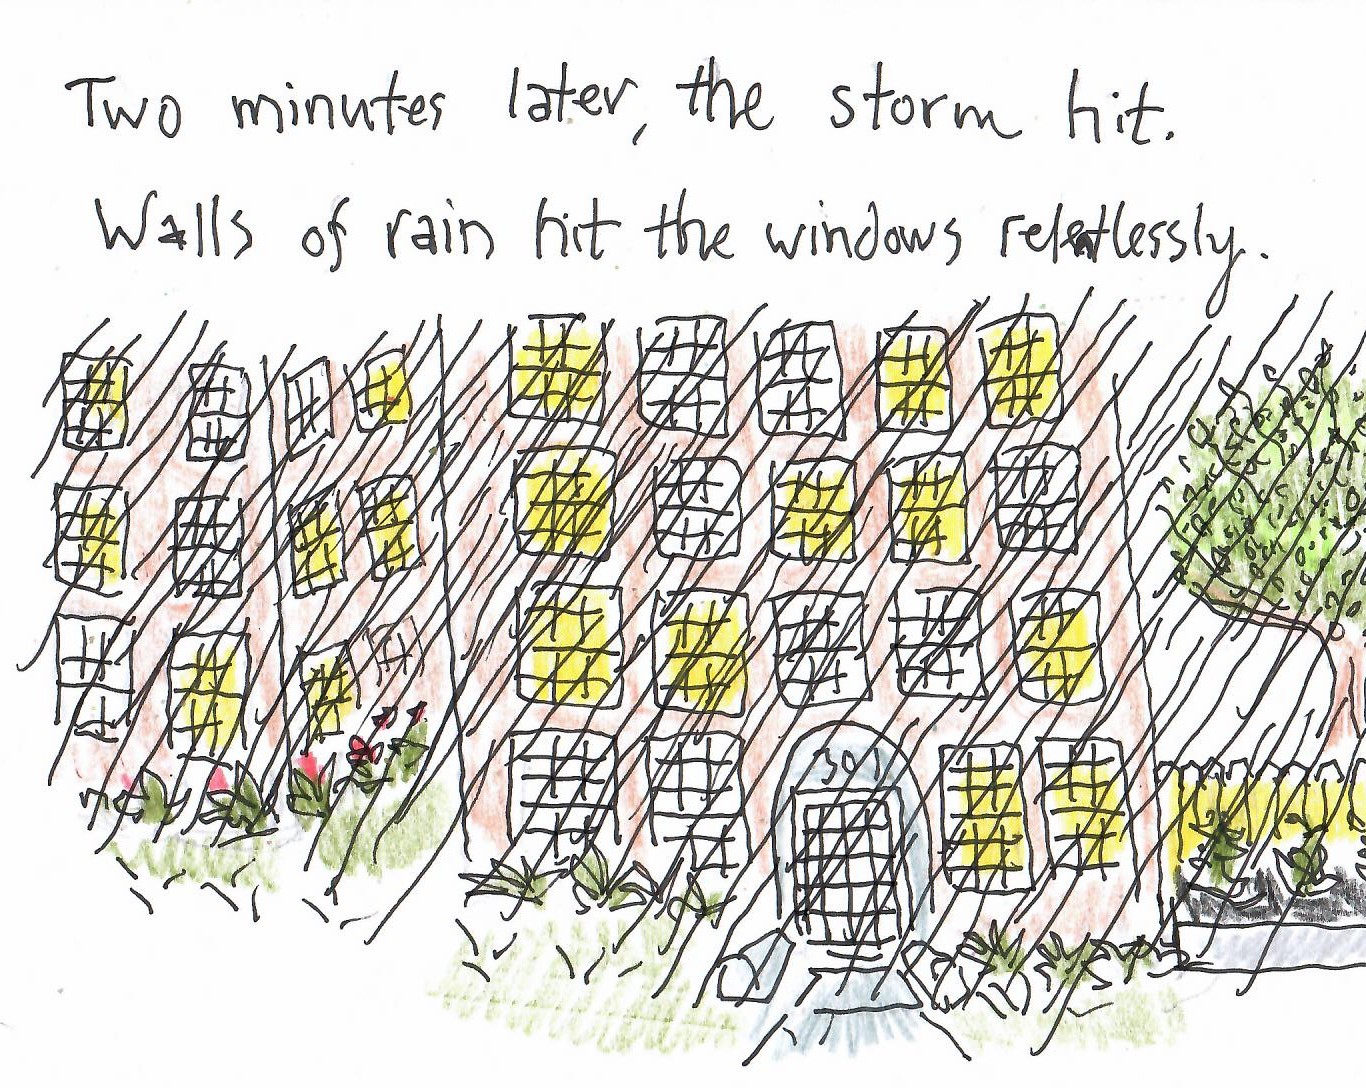 Two minutes later, the storm hit.
Walls of rain hit the windows relentlessly.
301